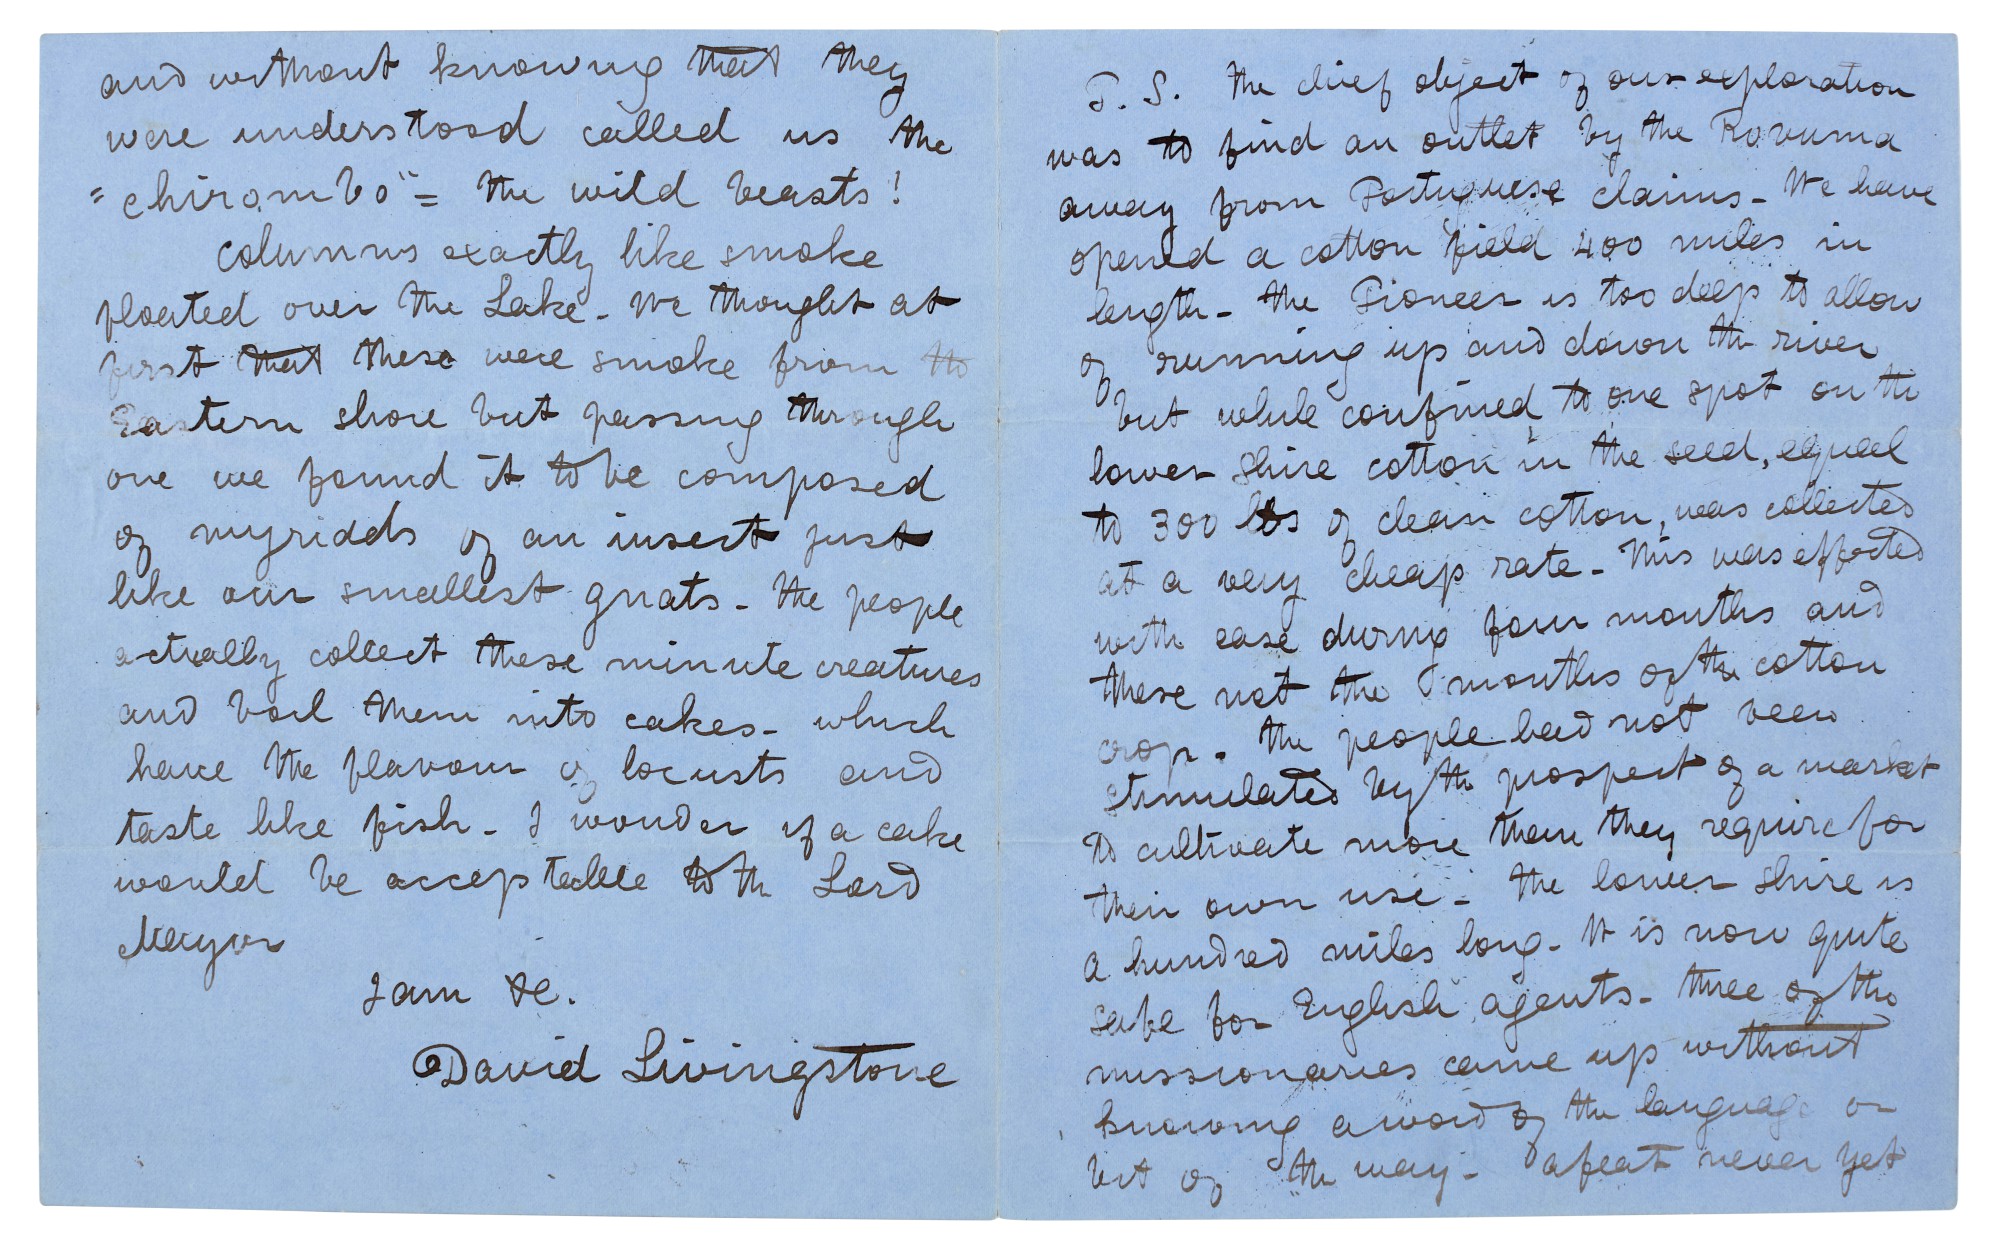 and without knowing that they
were understood called us the
"chirombo" = the wild beasts!
Columns exactly like smoke
floated over the Lake - We thought at
first that these were smoke from the
Eastern shore but passing through
one we found it to be composed
of myriads of an insect just
like our smallest gnats - The people
actually collect these minute creatures
and boil them into cakes - which
have the flavour of locusts and
taste like fish - I wonder if a cake
would be acceptable to the Lord
Mayor
I am &c.
David Livingstone
P. S. The chief object of our exploration
was to find an outlet by the Rovuma
away from Portuguese claims - We have
opened a cotton field 400 miles in
length - The Pioneer is too deep to allow
of running up and down the river
but while confined to one spot on the
lower Shire cotton in the seed, equal
to 300 lbs of clean cotton, was collected
at a very cheap rate - This was effected
with ease during four months and
these not the months of the cotton
crop - The people had not been
stimulated by the prospect of a market
to cultivate more than they require for
their own use - The lower Shire is
a hundred miles long - It is now quite
safe for English agents - three of the
missionaries came up without
knowing a word of the language or
bit of the way - a feat never yet